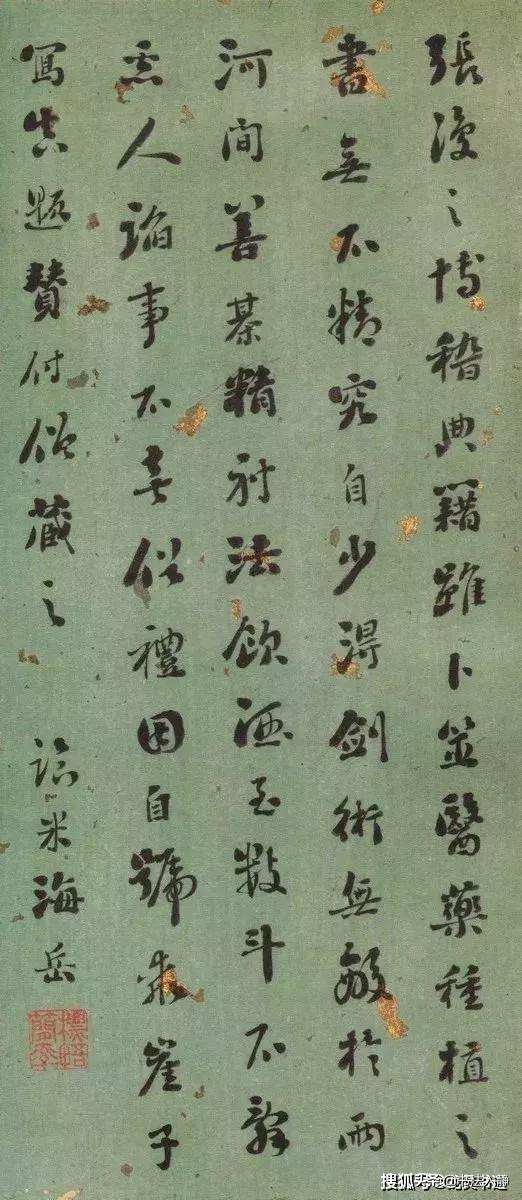 張復之博稽典籍雖卜筮醫藥種植之
書無不精究自少得劍術無敵於兩
河間善棊精射法飲酒至數斗不辭
惡人諂事不喜俗禮因自號乖崖子
寫真題贊付僧藏之
臨米海岳
搜狐号@